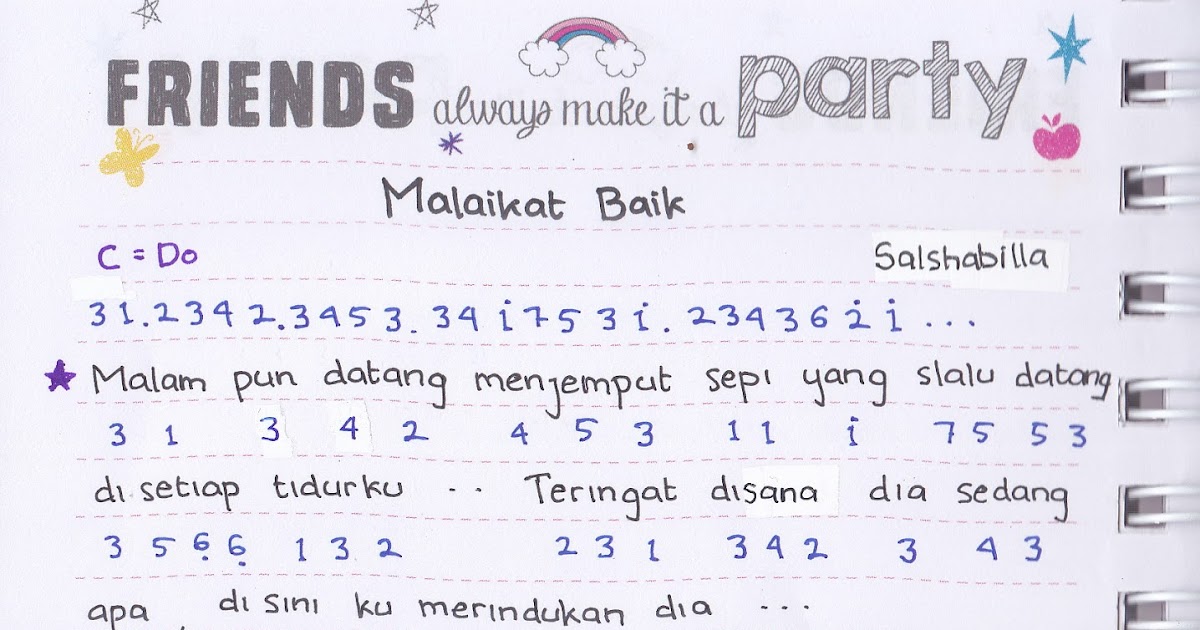 FRIENDS always make it a party
Malaikat Baik
C = Do
Salshabilla
3 1 . 2 3 4 2 . 3 4 5 3 . 3 4 i 7 5 3 i . 2 3 4 3 6 2̇ i ...
Malam pun datang menjemput sepi yang slalu datang
3 1 3 4 2 4 5 3 1 1 i 7 5 5 3
di setiap tidurku .. Teringat disana dia sedang
3 5 6̣ 6̣ 1 3 2 2 3 1 3 4 2 3 4 3
apa, di sini ku merindukan dia ...